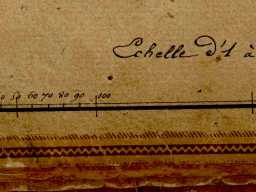 Echelle d'1 à
0 50 60 70 80 90 100